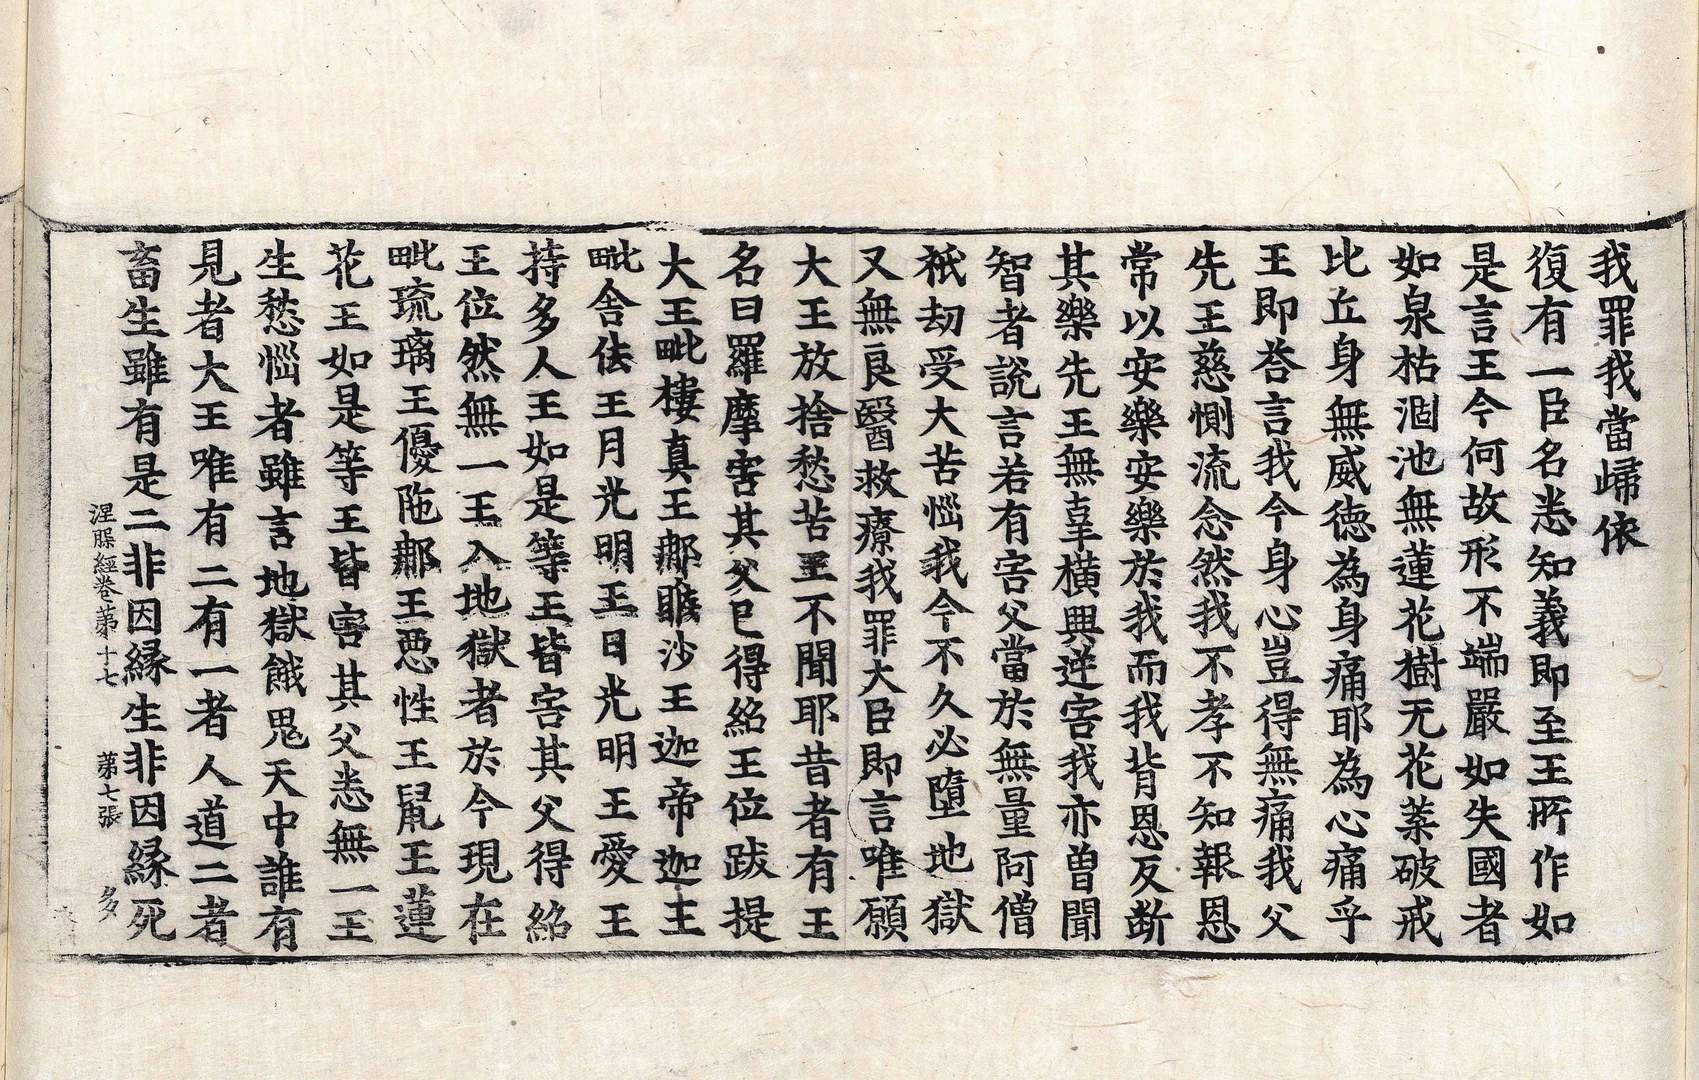 我罪我當歸依
復有一臣名悉知義即至王所作如
是言王今何故形不端嚴如失國者
如泉枯涸池無蓮花樹无花葉破戒
比丘身無威德為身痛耶為心痛乎
王即荅言我今身心豈得無痛我父
先王慈惻流念然我不孝不知報恩
常以安樂安樂於我而我背恩反断
其樂先王無辜橫興逆害我亦曽聞
智者說言若有害父當於無量阿僧
祇劫受大苦惱我今不久必墮地獄
又無良醫救療我罪大臣即言唯願
大王放捨愁苦王不聞耶昔者有王
名曰羅摩害其父已得紹王位跋提
大王毗樓真王那睺沙王迦帝迦王
毗舍佉王月光明王日光明王愛王
持多人王如是等王皆害其父得紹
王位然無一王入地獄者於今現在
毗琉璃王優陁那王惡性王鼠王蓮
花王如是等王皆害其父悉無一王
生愁惱者雖言地獄餓鬼天中誰有
見者大王唯有二有一者人道二者
畜生雖有是二非因緣生非因緣死
涅槃經卷苐十七 苐七張 多